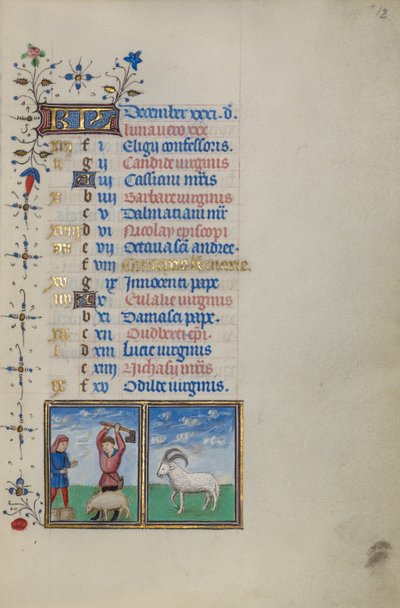 12
KL December xxxi. d.
luna vero xxx
f i Eligij confessoris.
ii g ij Candide virginis
A iij Cassiani mris
x b iiij Barbare virginis
c v Dalmatiani mr
xviii d vi Nicolay episcopi
vii e vij Octava sci andree.
f viij
xv g ix Innocenti pape
iiij A x Eulalie virginis
b xi Damasci pape.
xii c xij Oudberti epi.
i d xiij Lucie virginis
e xiiij Nichasij mris
ix f xv Odilde virginis.